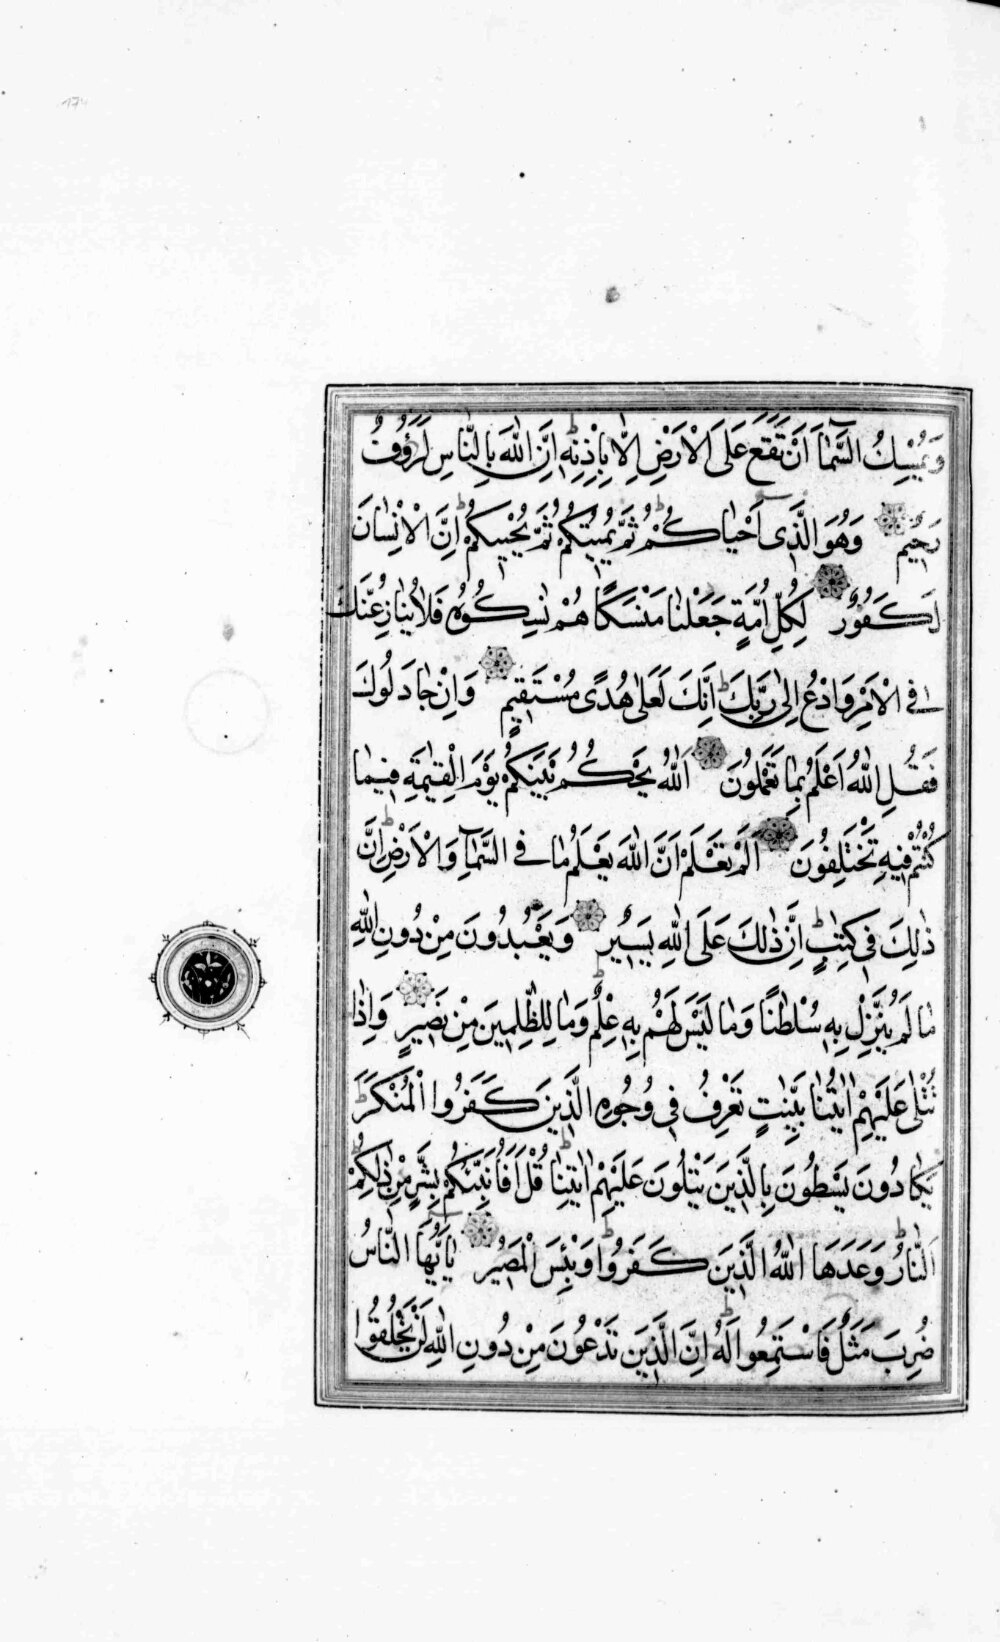 وَيُمْسِكُ السَّمَآءَ اَنْ تَقَعَ عَلَى الْاَرْضِ اِلَّا بِاِذْنِهِ اِنَّ اللّٰهَ بِالنَّاسِ لَرَؤُفٌ
رَحِيمٌ وَهُوَ الَّذِى اَحْيَاكُمْ ثُمَّ يُمِيتُكُمْ ثُمَّ يُحْيِيكُمْ اِنَّ الْاِنْسَانَ
لَكَفُورٌ لِكُلِّ اُمَّةٍ جَعَلْنَا مَنْسَكًا هُمْ نَاسِكُوهُ فَلَا يُنَازِعُنَّكَ
فِى الْاَمْرِ وَادْعُ اِلٰى رَبِّكَ اِنَّكَ لَعَلٰى هُدًى مُسْتَقِيمٍ وَاِنْ جَادَلُوكَ
فَقُلِ اللّٰهُ اَعْلَمُ بِمَا تَعْمَلُونَ اَللّٰهُ يَحْكُمُ بَيْنَكُمْ يَوْمَ الْقِيٰمَةِ فِيمَا
كُنْتُمْ فِيهِ تَخْتَلِفُونَ اَلَمْ تَعْلَمْ اَنَّ اللّٰهَ يَعْلَمُ مَا فِى السَّمَآءِ وَالْاَرْضِ اِنَّ
ذٰلِكَ فِى كِتَابٍ اِنَّ ذٰلِكَ عَلَى اللّٰهِ يَسِيرٌ وَيَعْبُدُونَ مِنْ دُونِ اللّٰهِ
مَا لَمْ يُنَزِّلْ بِهِ سُلْطٰنًا وَمَا لَيْسَ لَهُمْ بِهِ عِلْمٌ وَمَا لِلظّٰلِمِينَ مِنْ نَصِيرٍ وَاِذَا
تُتْلٰى عَلَيْهِمْ اٰيَاتُنَا بَيِّنَاتٍ تَعْرِفُ فِى وُجُوهِ الَّذِينَ كَفَرُوا الْمُنْكَرَ
يَكَادُونَ يَسْطُونَ بِالَّذِينَ يَتْلُونَ عَلَيْهِمْ اٰيَاتِنَا قُلْ اَفَاُنَبِّئُكُمْ بِشَرٍّ مِنْ ذٰلِكُمْ
اَلنَّارُ وَعَدَهَا اللّٰهُ الَّذِينَ كَفَرُوا وَبِئْسَ الْمَصِيرُ يَآاَيُّهَا النَّاسُ
ضُرِبَ مَثَلٌ فَاسْتَمِعُوا لَهُ اِنَّ الَّذِينَ تَدْعُونَ مِنْ دُونِ اللّٰهِ لَنْ يَخْلُقُوا